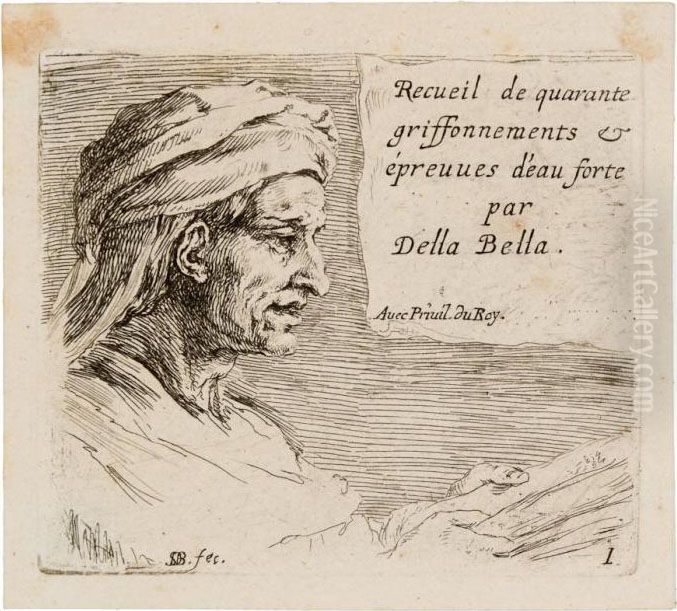 Recueil de quarante
griffonnements &
épreuues d'eau forte
par
Della Bella.
Avec Priuil. du Roy.
SDB. fec.
1
NiceArtGallery.com